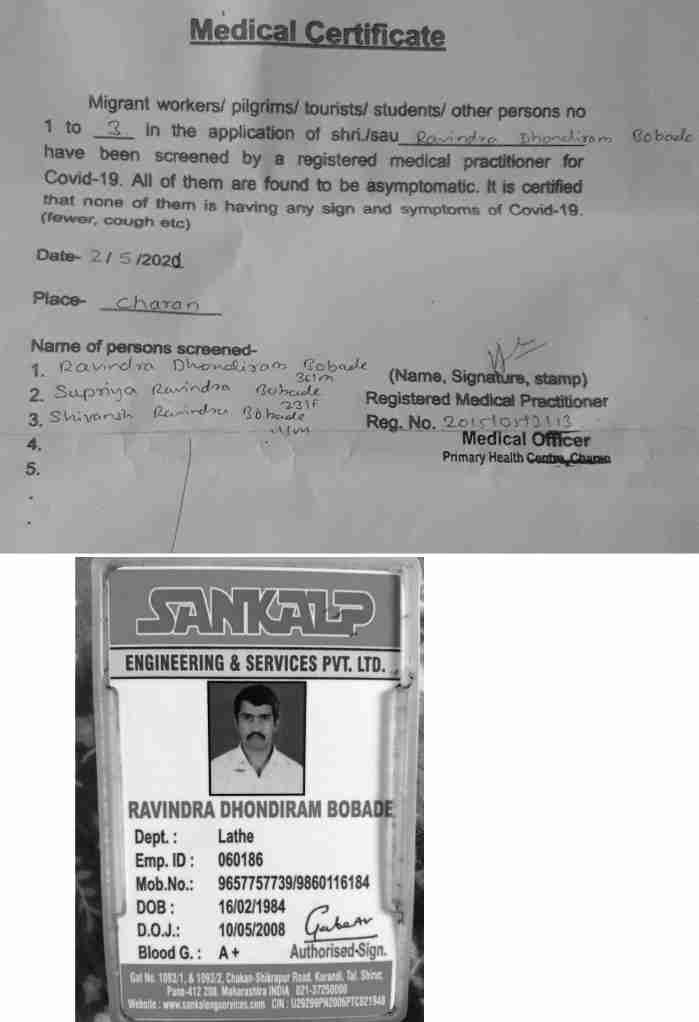 Medical Certificate
Migrant workers/ pilgrims/ tourists/ students/ other persons no
1 to 3 in the application of shri./sau Ravindra Dhondiram Bobade
have been screened by a registered medical practitioner for
Covid-19. All of them are found to be asymptomatic. It is certified
that none of them is having any sign and symptoms of Covid-19.
(fewer, cough etc)
Date- 2/5/2020
Place- Charan
Name of persons screened-
1. Ravindra Dhondiram Bobade
36/m
2. Supriya Ravindra Bobade
23/F
3. Shivansh Ravindra Bobade
4.
5.
(Name, Signature, stamp)
Registered Medical Practitioner
Reg. No.
Medical Officer
Primary Health Centre, Charan
SANKALP
ENGINEERING & SERVICES PVT. LTD.
RAVINDRA DHONDIRAM BOBADE
Dept. : Lathe
Emp. ID : 060186
Mob.No.: 9657757739/9860116184
DOB : 16/02/1984
D.O.J.: 10/05/2008
Blood G. : A+ Authorised-Sign.
Gat No. 1093/1, & 1093/2, Chakan-Shikrapur Road, Karandi, Tal. Shirur,
Pune-412 208. Maharashtra INDIA 021-37250000
Website : www.sankalpengservices.com CIN : U29299PN2006PTC021948